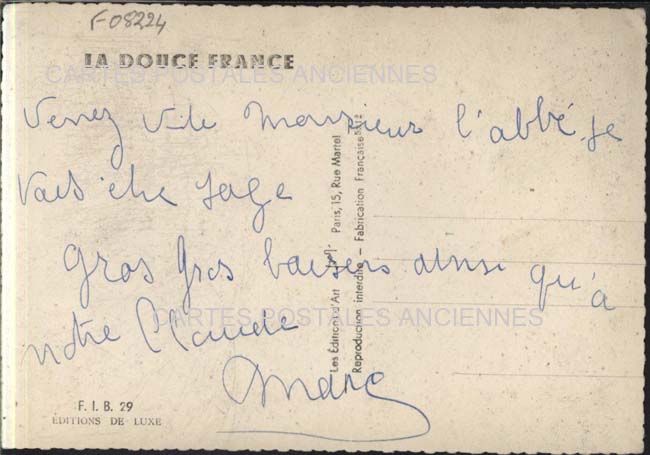 F08224
LA DOUCE FRANCE
CARTES POSTALES ANCIENNES
Venez vite Monsieur l'abbé. Je
vais être sage
Gros Gros baisers ainsi qu'à
notre Claude
Marc
CARTES POSTALES ANCIENNES
Les Éditions d'Art Paris, 15, Rue Martel
Reproduction interdite - Fabrication Française
F. I. B. 29
ÉDITIONS DE LUXE